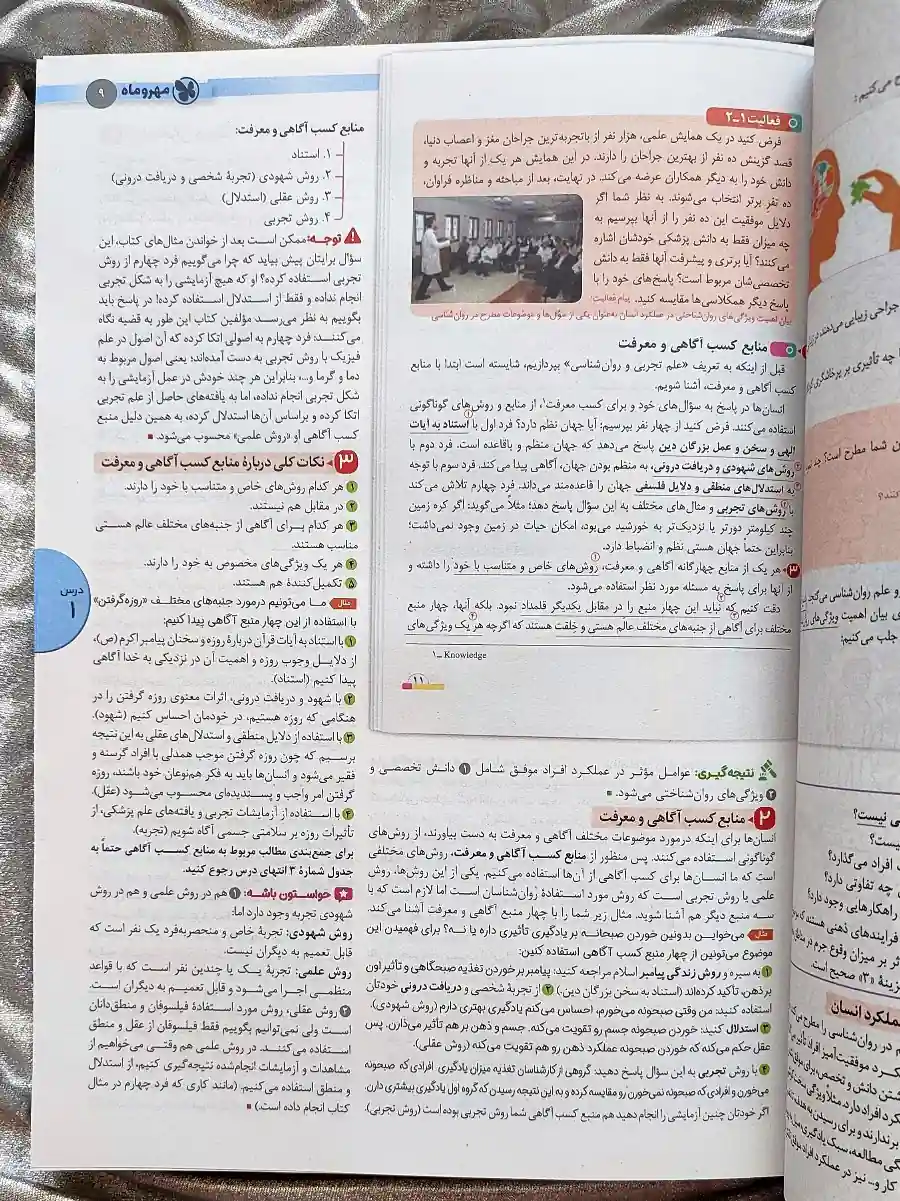 مهروماه
۹
فعالیت ۱-۲
فرض کنید در یک همایش علمی، هزار نفر از باتجربه‌ترین جراحان مغز و اعصاب دنیا،
قصد گزینش ده نفر از بهترین جراحان را دارند. در این همایش هر یک از آنها تجربه و
دانش خود را به دیگر همکاران عرضه می‌کند. در نهایت، بعد از مباحثه و مناظره فراوان،
ده نفر برتر انتخاب می‌شوند. به نظر شما اگر
دلایل موفقیت این ده نفر را از آنها بپرسیم به
چه میزان فقط به دانش پزشکی خودشان اشاره
می‌کنند؟ آیا برتری و پیشرفت آنها فقط به دانش
تخصصی‌شان مربوط است؟ پاسخ‌های خود را با
پاسخ دیگر همکلاسی‌ها مقایسه کنید. پیام فعالیت:
بیان اهمیت ویژگی‌های روان‌شناختی در عملکرد انسان به‌عنوان یکی از سؤال‌ها و موضوعات مطرح در روان‌شناسی
منابع کسب آگاهی و معرفت
قبل از اینکه به تعریف «علم تجربی و روان‌شناسی» بپردازیم، شایسته است ابتدا با منابع
کسب آگاهی و معرفت، آشنا شویم.
انسان‌ها در پاسخ به سؤال‌های خود و برای کسب معرفت۱، از منابع و روش‌های گوناگونی
استفاده می‌کنند. فرض کنید از چهار نفر بپرسیم: آیا جهان نظم دارد؟ فرد اول با استناد به آیات
الهی و سخن و عمل بزرگان دین پاسخ می‌دهد که جهان منظم و باقاعده است. فرد دوم با
روش‌های شهودی و دریافت درونی، به منظم بودن جهان، آگاهی پیدا می‌کند. فرد سوم با توجه
به استدلال‌های منطقی و دلایل فلسفی جهان را قاعده‌مند می‌داند. فرد چهارم تلاش می‌کند
با روش‌های تجربی و مثال‌های مختلف به این سؤال پاسخ دهد؛ مثلاً می‌گوید: اگر کره زمین
چند کیلومتر دورتر یا نزدیک‌تر به خورشید می‌بود، امکان حیات در زمین وجود نمی‌داشت؛
بنابراین حتماً جهان هستی نظم و انضباط دارد.
۳ هر یک از منابع چهارگانه آگاهی و معرفت، روش‌های خاص و متناسب با خود را داشته و
از آنها برای پاسخ به مسئله مورد نظر استفاده می‌شود.
دقت کنیم که نباید این چهار منبع را در مقابل یکدیگر قلمداد نمود. بلکه آنها، چهار منبع
مختلف برای آگاهی از جنبه‌های مختلف عالم هستی و خلقت هستند که اگرچه هر یک ویژگی‌های
۱- Knowledge
۱۱
نتیجه‌گیری: عوامل مؤثر در عملکرد افراد موفق شامل ۱ دانش تخصصی و
۲ ویژگی‌های روان‌شناختی می‌شود.
۲ منابع کسب آگاهی و معرفت
انسان‌ها برای اینکه درمورد موضوعات مختلف آگاهی و معرفت به دست بیاورند، از روش‌های
گوناگونی استفاده می‌کنند. پس منظور از منابع کسب آگاهی و معرفت، روش‌های مختلفی
است که ما انسان‌ها برای کسب آگاهی از آن‌ها استفاده می‌کنیم. یکی از این روش‌ها، روش
علمی یا روش تجربی است که روش مورد استفادۀ روان‌شناسان است اما لازم است که با
سه منبع دیگر هم آشنا شوید. مثال زیر شما را با چهار منبع آگاهی و معرفت آشنا می‌کند.
مثال می‌خواین بدونین خوردن صبحونه بر یادگیری تأثیری داره یا نه؟ برای فهمیدن این
موضوع می‌تونین از چهار منبع کسب آگاهی استفاده کنین:
۱ به سیره و روش زندگی پیامبر اسلام مراجعه کنید: پیامبر بر خوردن تغذیه صبحگاهی و تأثیر اون
بر ذهن، تأکید کرده‌اند (استناد به سخن بزرگان دین). ۲ از تجربۀ شخصی و دریافت درونی خودتان
استفاده کنید: من وقتی صبحونه می‌خورم، احساس می‌کنم یادگیری بهتری دارم (روش شهودی).
۳ استدلال کنید: خوردن صبحونه جسم رو تقویت می‌کنه. جسم و ذهن بر هم تأثیر می‌ذارن. پس
عقل حکم می‌کنه که خوردن صبحونه عملکرد ذهن رو هم تقویت می‌کنه (روش عقلی).
۴ با روش تجربی به این سؤال پاسخ دهید: گروهی از کارشناسان تغذیه میزان یادگیری افرادی که صبحونه
می‌خورن و افرادی که صبحونه نمی‌خورن رو مقایسه کرده و به این نتیجه رسیدن که گروه اول یادگیری بیشتری دارن.
اگر خودتان چنین آزمایشی را انجام دهید هم منبع کسب آگاهی شما روش تجربی بوده است (روش تجربی).
منابع کسب آگاهی و معرفت:
۱. استناد
۲. روش شهودی (تجربۀ شخصی و دریافت درونی)
۳. روش عقلی (استدلال)
۴. روش تجربی
توجه: ممکن است بعد از خواندن مثال‌های کتاب، این
سؤال برایتان پیش بیاید که چرا می‌گوییم فرد چهارم از روش
تجربی استفاده کرده؟ او که هیچ آزمایشی را به شکل تجربی
انجام نداده و فقط از استدلال استفاده کرده! در پاسخ باید
بگوییم به نظر می‌رسد مؤلفین کتاب این طور به قضیه نگاه
می‌کنند: فرد چهارم به اصولی اتکا کرده که آن اصول در علم
فیزیک با روش تجربی به دست آمده‌اند؛ یعنی اصول مربوط به
دما و گرما و...، بنابراین هر چند خودش در عمل آزمایشی را به
شکل تجربی انجام نداده، اما به یافته‌های حاصل از علم تجربی
اتکا کرده و براساس آن‌ها استدلال کرده، به همین دلیل منبع
کسب آگاهی او «روش علمی» محسوب می‌شود.
۳ نکات کلی دربارۀ منابع کسب آگاهی و معرفت
۱ هر کدام روش‌های خاص و متناسب با خود را دارند.
۲ در مقابل هم نیستند.
۳ هر کدام برای آگاهی از جنبه‌های مختلف عالم هستی
مناسب هستند.
۴ هر یک ویژگی‌های مخصوص به خود را دارند.
۵ تکمیل‌کنندۀ هم هستند.
مثال ما می‌تونیم درمورد جنبه‌های مختلف «روزه‌گرفتن»
با استفاده از این چهار منبع آگاهی پیدا کنیم:
۱ با استناد به آیات قرآن دربارۀ روزه و سخنان پیامبر اکرم (ص)،
از دلایل وجوب روزه و اهمیت آن در نزدیکی به خدا آگاهی
پیدا کنیم (استناد).
۲ با شهود و دریافت درونی، اثرات معنوی روزه گرفتن را در
هنگامی که روزه هستیم، در خودمان احساس کنیم (شهود).
۳ با استفاده از دلایل منطقی و استدلال‌های عقلی به این نتیجه
برسیم که چون روزه گرفتن موجب همدلی با افراد گرسنه و
فقیر می‌شود و انسان‌ها باید به فکر هم‌نوعان خود باشند، روزه
گرفتن امر واجب و پسندیده‌ای محسوب می‌شود (عقل).
۴ با استفاده از آزمایشات تجربی و یافته‌های علم پزشکی، از
تأثیرات روزه بر سلامتی جسمی آگاه شویم (تجربه).
برای جمع‌بندی مطالب مربوط به منابع کسب آگاهی حتماً به
جدول شمارۀ ۳ انتهای درس رجوع کنید.
حواستون باشه: ۱ هم در روش علمی و هم در روش
شهودی تجربه وجود دارد اما:
روش شهودی: تجربۀ خاص و منحصربه‌فرد یک نفر است که
قابل تعمیم به دیگران نیست.
روش علمی: تجربۀ یک یا چندین نفر است که با قواعد
منظمی اجرا می‌شود و قابل تعمیم به دیگران است.
۲ روش عقلی، روش مورد استفادۀ فیلسوفان و منطق‌دانان
است ولی نمی‌توانیم بگوییم فقط فیلسوفان از عقل و منطق
استفاده می‌کنند. در روش علمی هم وقتی می‌خواهیم از
مشاهدات و آزمایشات انجام‌شده نتیجه‌گیری کنیم، از استدلال
و منطق استفاده می‌کنیم. (مانند کاری که فرد چهارم در مثال
کتاب انجام داده است.)
درس
۱
ح می‌کنیم:
جراحی زیبایی می‌دهند
چه تأثیری بر پرخاشگری
شما مطرح است؟
کنند؟
و علم روان‌شناسی
بیان اهمیت ویژگی‌های
جلب می‌کنیم:
نیست؟
افراد می‌گذارد؟
چه تفاوتی دارد؟
راهکارهایی وجود دارد؟
فرایندهای ذهنی هستند که
بر میزان وقوع جرم در
گزینۀ «۳» صحیح است.
عملکرد انسان